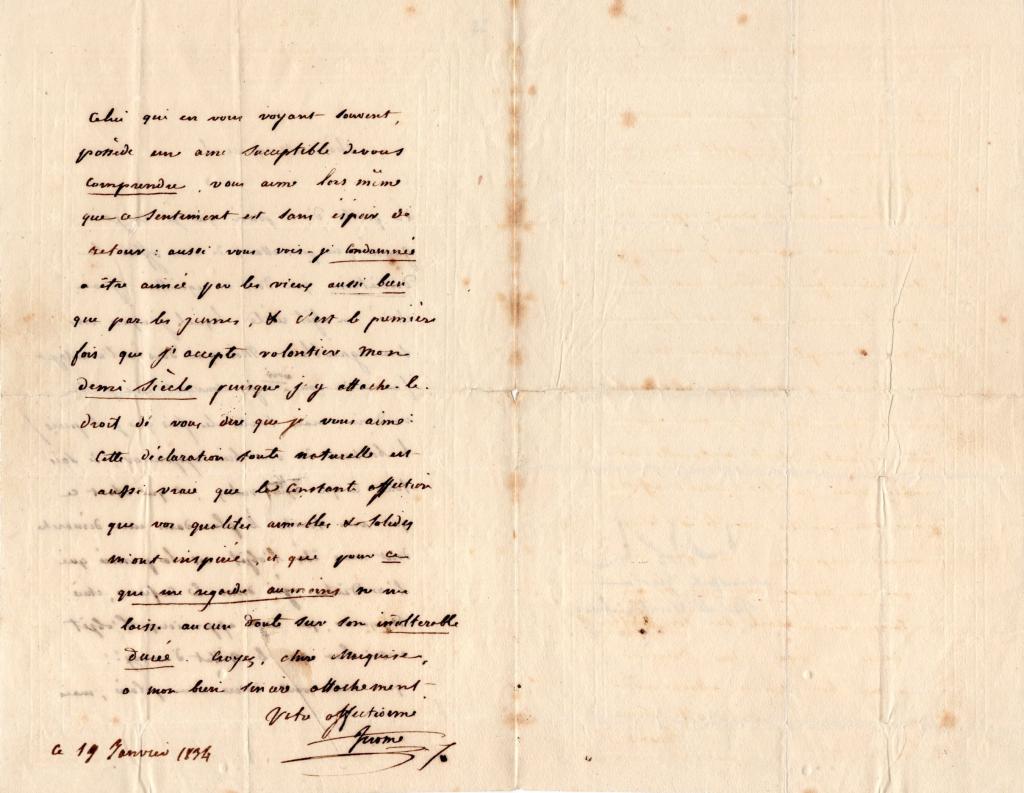 Celui qui en vous voyant souvent,
possède une ame susceptible de vous
comprendre, vous aime lors même
que ce sentiment est sans espoir de
retour : aussi vous vois-je condamnée
a être aimée par les vieux aussi bien
que par les jeunes, & c'est la première
fois que j'accepte volontier mon
demi siècle puisque j'y attache le
droit de vous dire que je vous aime :
Cette déclaration toute naturelle est
aussi vraie que la constante affection
que vos qualités aimables & solides
m'ont inspirée, et que pour ce
qui me regarde au moins ne me
laisse aucun doute sur son inaltérable
durée. Croyez, chère Marquise,
a mon bien sincère attachement
Votre affectionné
Jerome
Ce 19 Janvier 1834